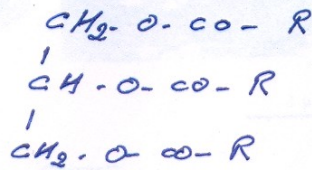 CH2 - O - CO - R
|
CH - O - CO - R
|
CH2 - O - CO - R